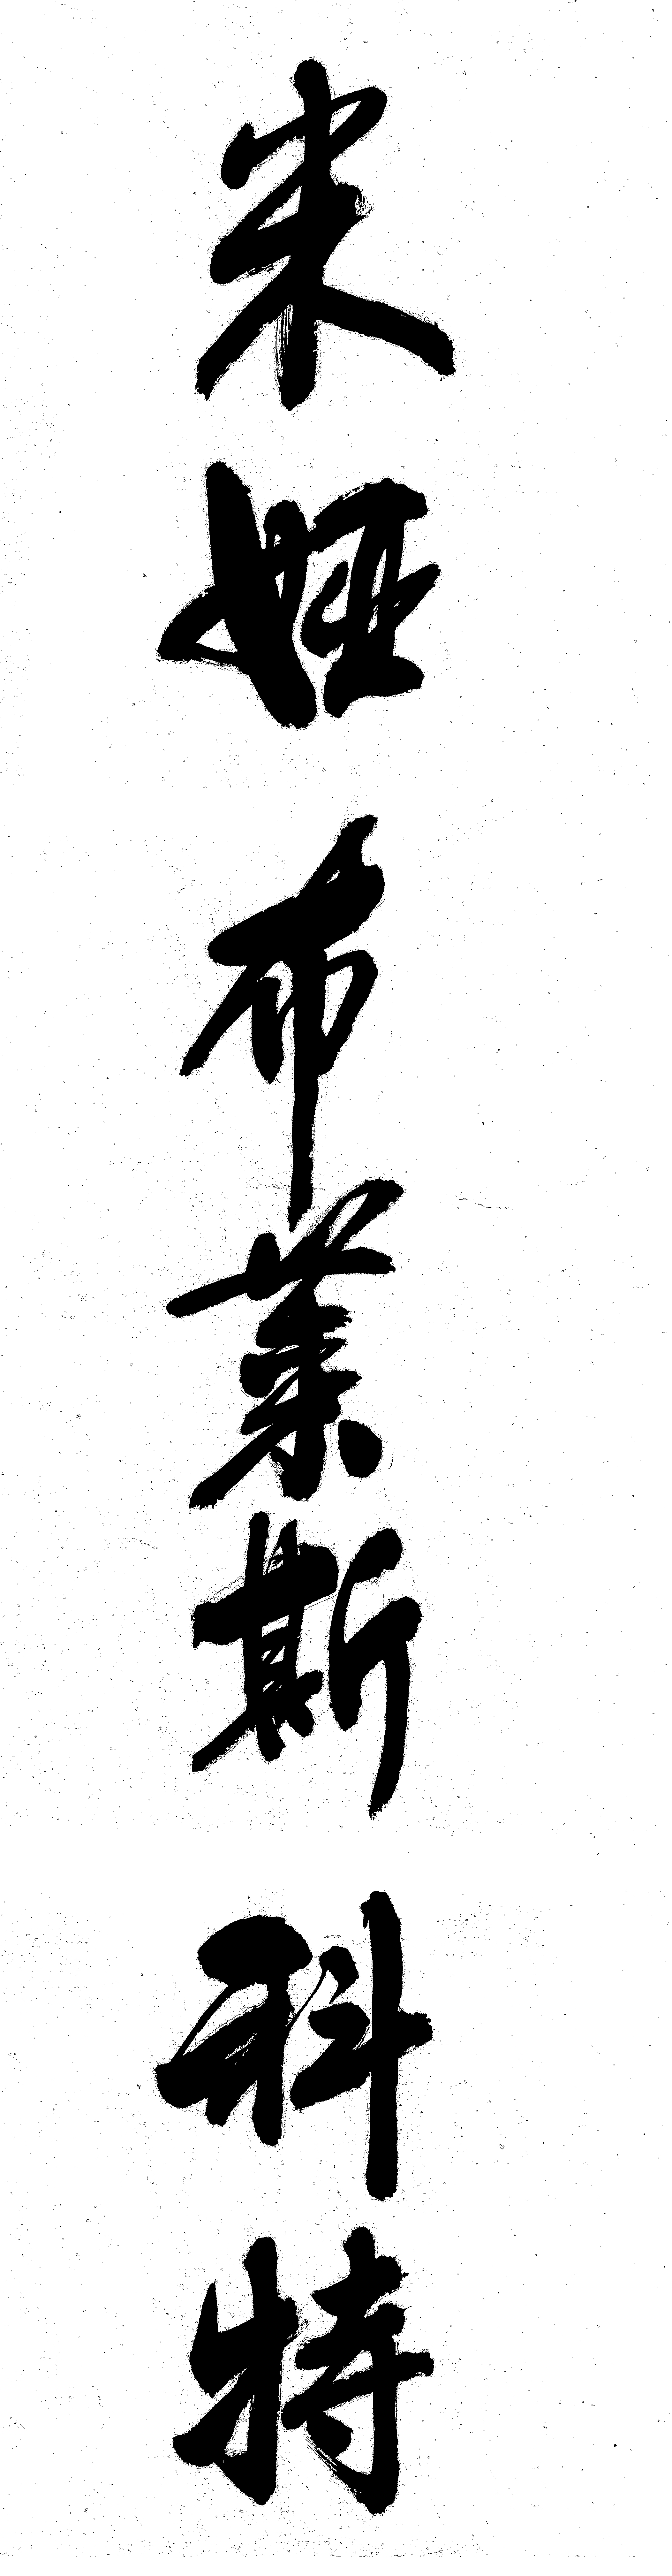 米娅布莱斯科特